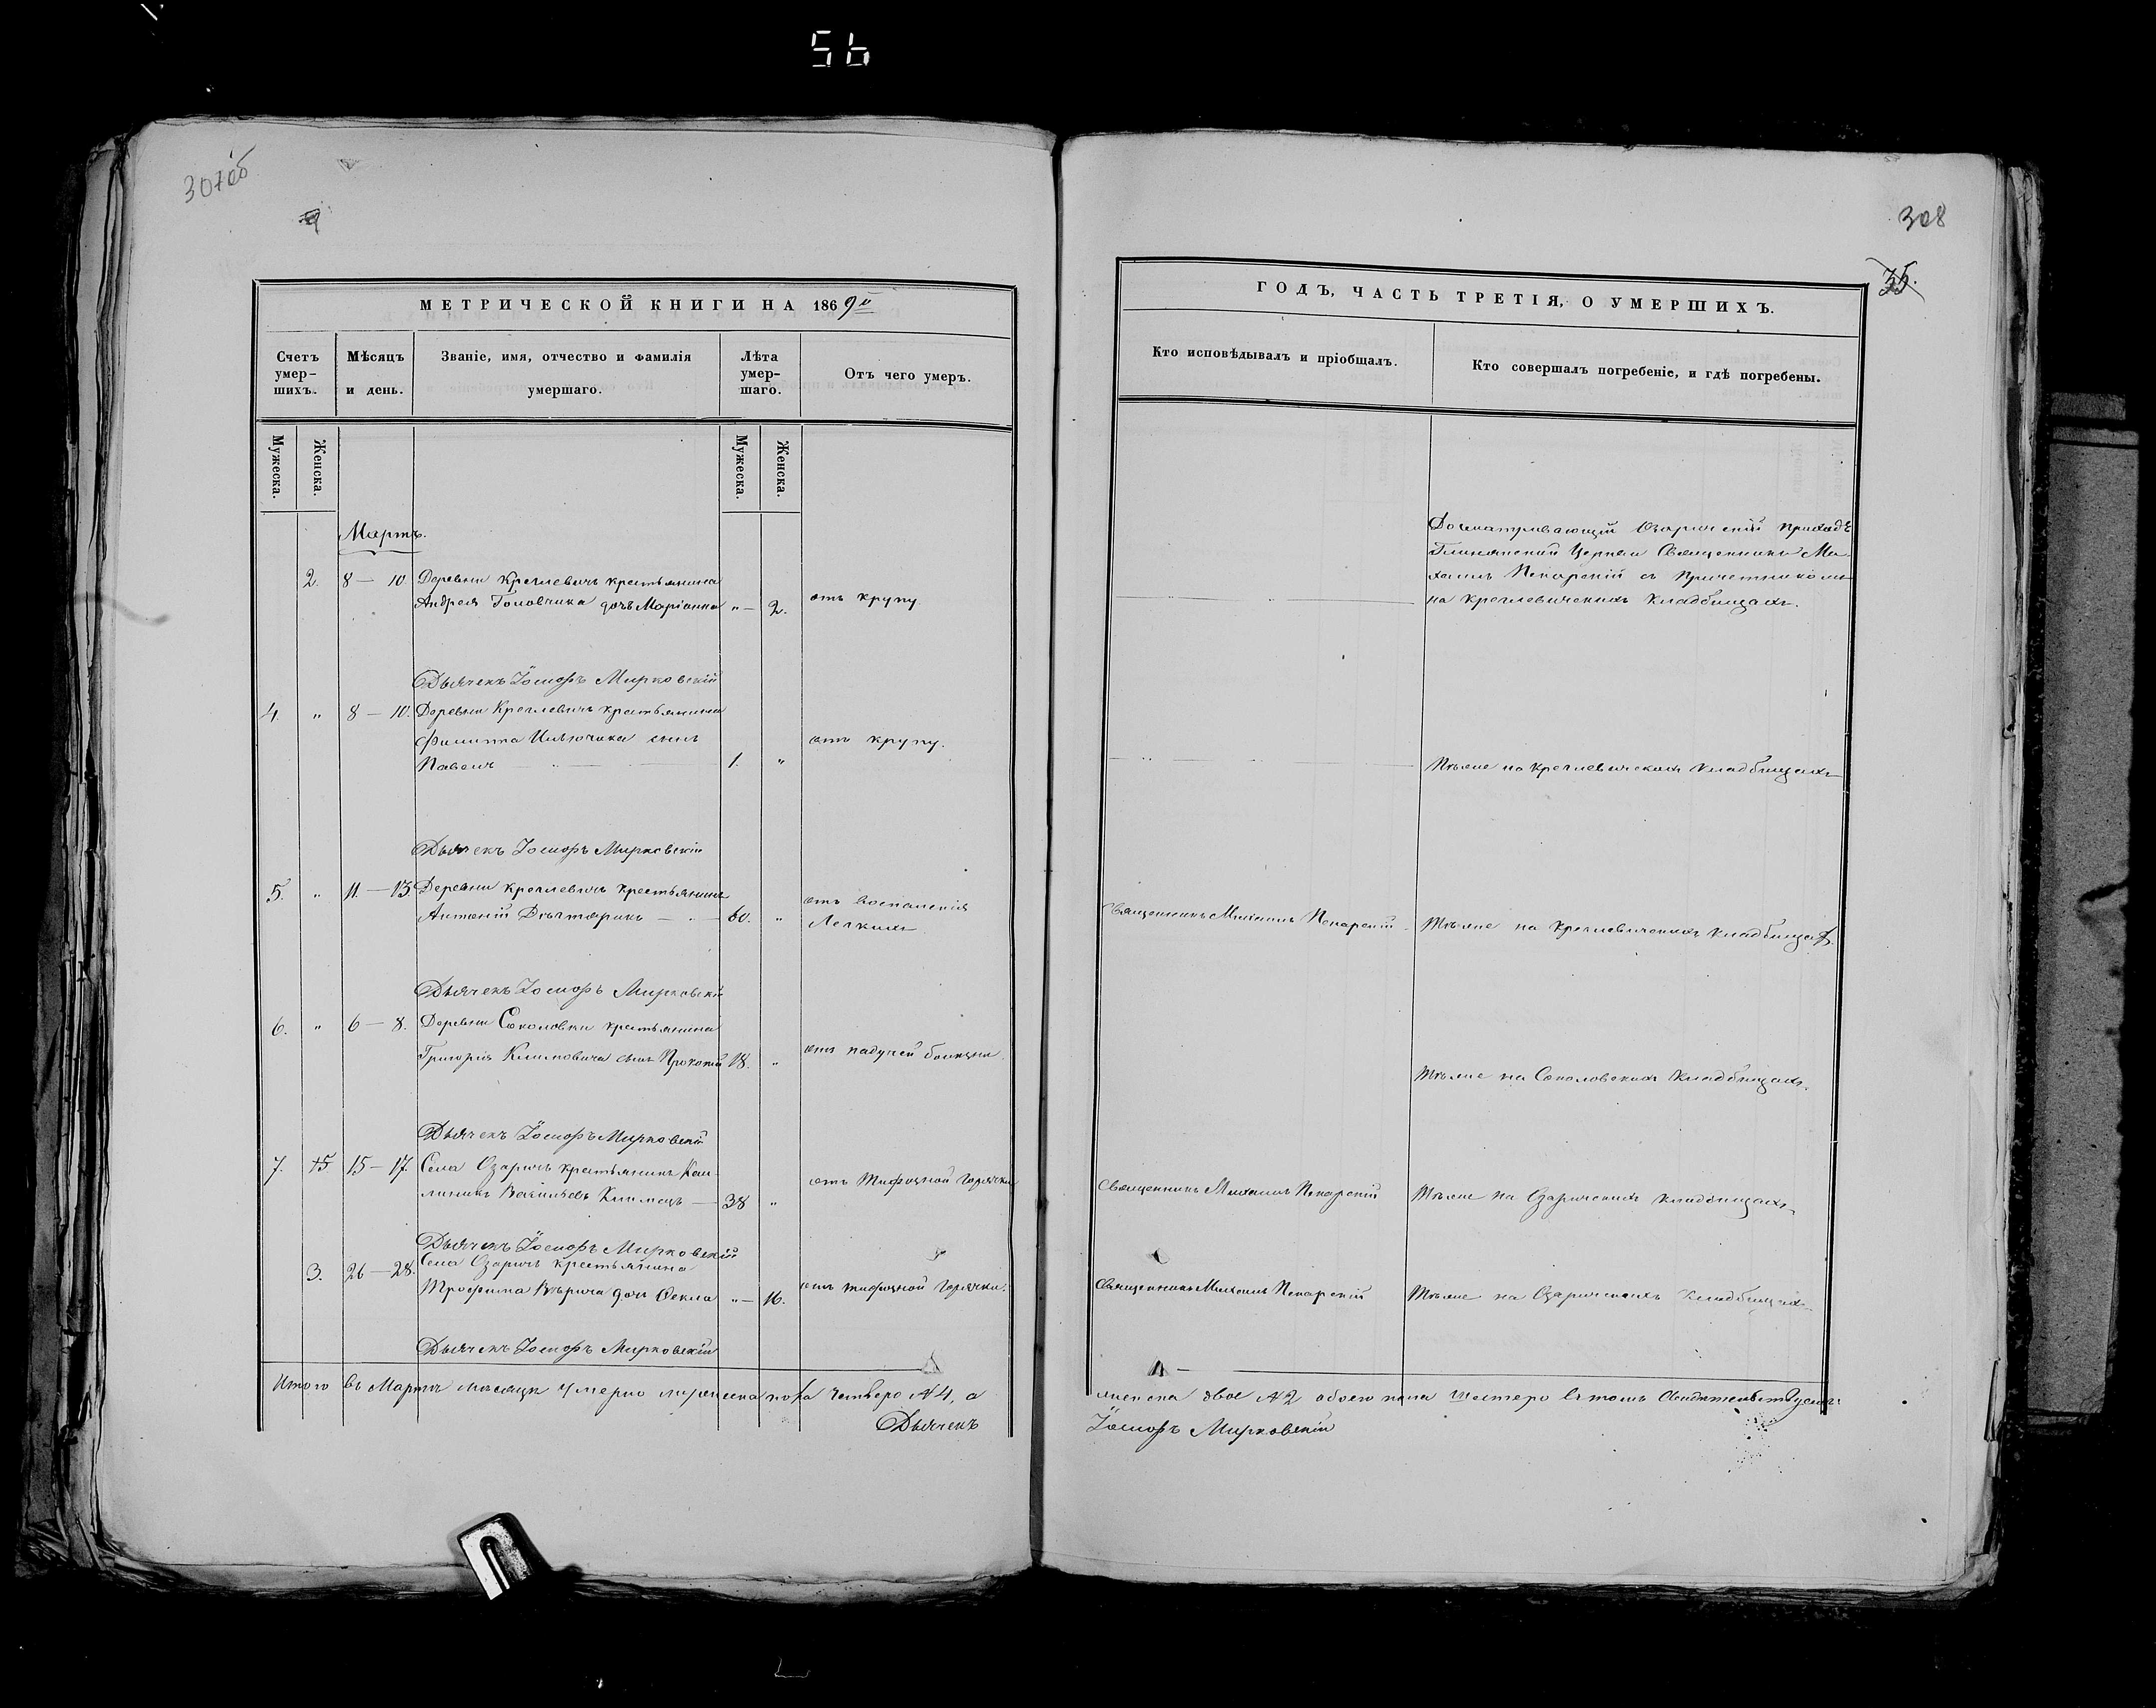 5b
307об
308
35.
МЕТРИЧЕСКОЙ КНИГИ НА 1869й
Счетъ умер-шихъ.
Мѣсяцъ и день.
Званіе, имя, отчество и фамилія умершаго.
Лѣта умер-шаго.
Отъ чего умеръ.
Мужеска.
Женска.
Мужеска.
Женска.
Мартъ.
2. 8 — 10 Деревни Креглевичъ крестьянина
Андрея Головчика дочь Маріанна „ — 2. отъ крупу
Дьячекъ Іосифъ Мирковскій
4. „ 8 — 10. Деревни Креглевичъ крестьянина
Филиппа сынъ
Павелъ 1. „ отъ крупу.
Дьячекъ Іосифъ Мирковскій
5. „ 11 — 13 Деревни Креглевичъ крестьянинъ
Антоній 60. „ отъ воспаленія
Легкихъ
Дьячекъ Іосифъ Мирковскій
6. „ 6 — 8. Деревни Соколовки крестьянина
Григорія Климовича сынъ Прокопій 18. „ отъ падучей болѣзни.
Дьячекъ Іосифъ Мирковскій
7. 15 15 — 17 Села Озаричъ крестьянинъ Кал-
линикъ Васильевъ Климецъ — 38 „ отъ Тифозной горячки
Дьячекъ Іосифъ Мирковскій
3. 26 — 28. Села Озаричъ крестьянина
Трофима дочь Ѳекла „ — 16. отъ тифозной Горячки.
Дьячекъ Іосифъ Мирковскій
Итого въ Мартѣ мѣсяцѣ умерло мужеска пола четверо №4, а
Дьячекъ
ГОДЪ, ЧАСТЬ ТРЕТІЯ, О УМЕРШИХЪ.
Кто исповѣдывалъ и пріобщалъ.
Кто совершалъ погребеніе, и гдѣ погребены.
Досматривающій Озаричскій приходъ
Глинянской Церкви Священникъ Ми-
хаилъ Пекарскій съ Причетникомъ
на Креглевичскихъ Кладбищахъ.
Тѣмже на Креглевичскихъ Кладбищахъ
Священникъ Михаилъ Пекарскій. Тѣмже на Креглевичскихъ Кладбищахъ
Тѣмже на Соколовскихъ Кладбищахъ.
Священникъ Михаилъ Пекарскій Тѣмже на Озаричскихъ Кладбищахъ
Священникъ Михаилъ Пекарскій Тѣмже на Озаричскихъ Кладбищахъ
женска двое №2 обоего пола шестеро въ томъ Свидѣтельствуемъ:
Іосифъ Мирковскій